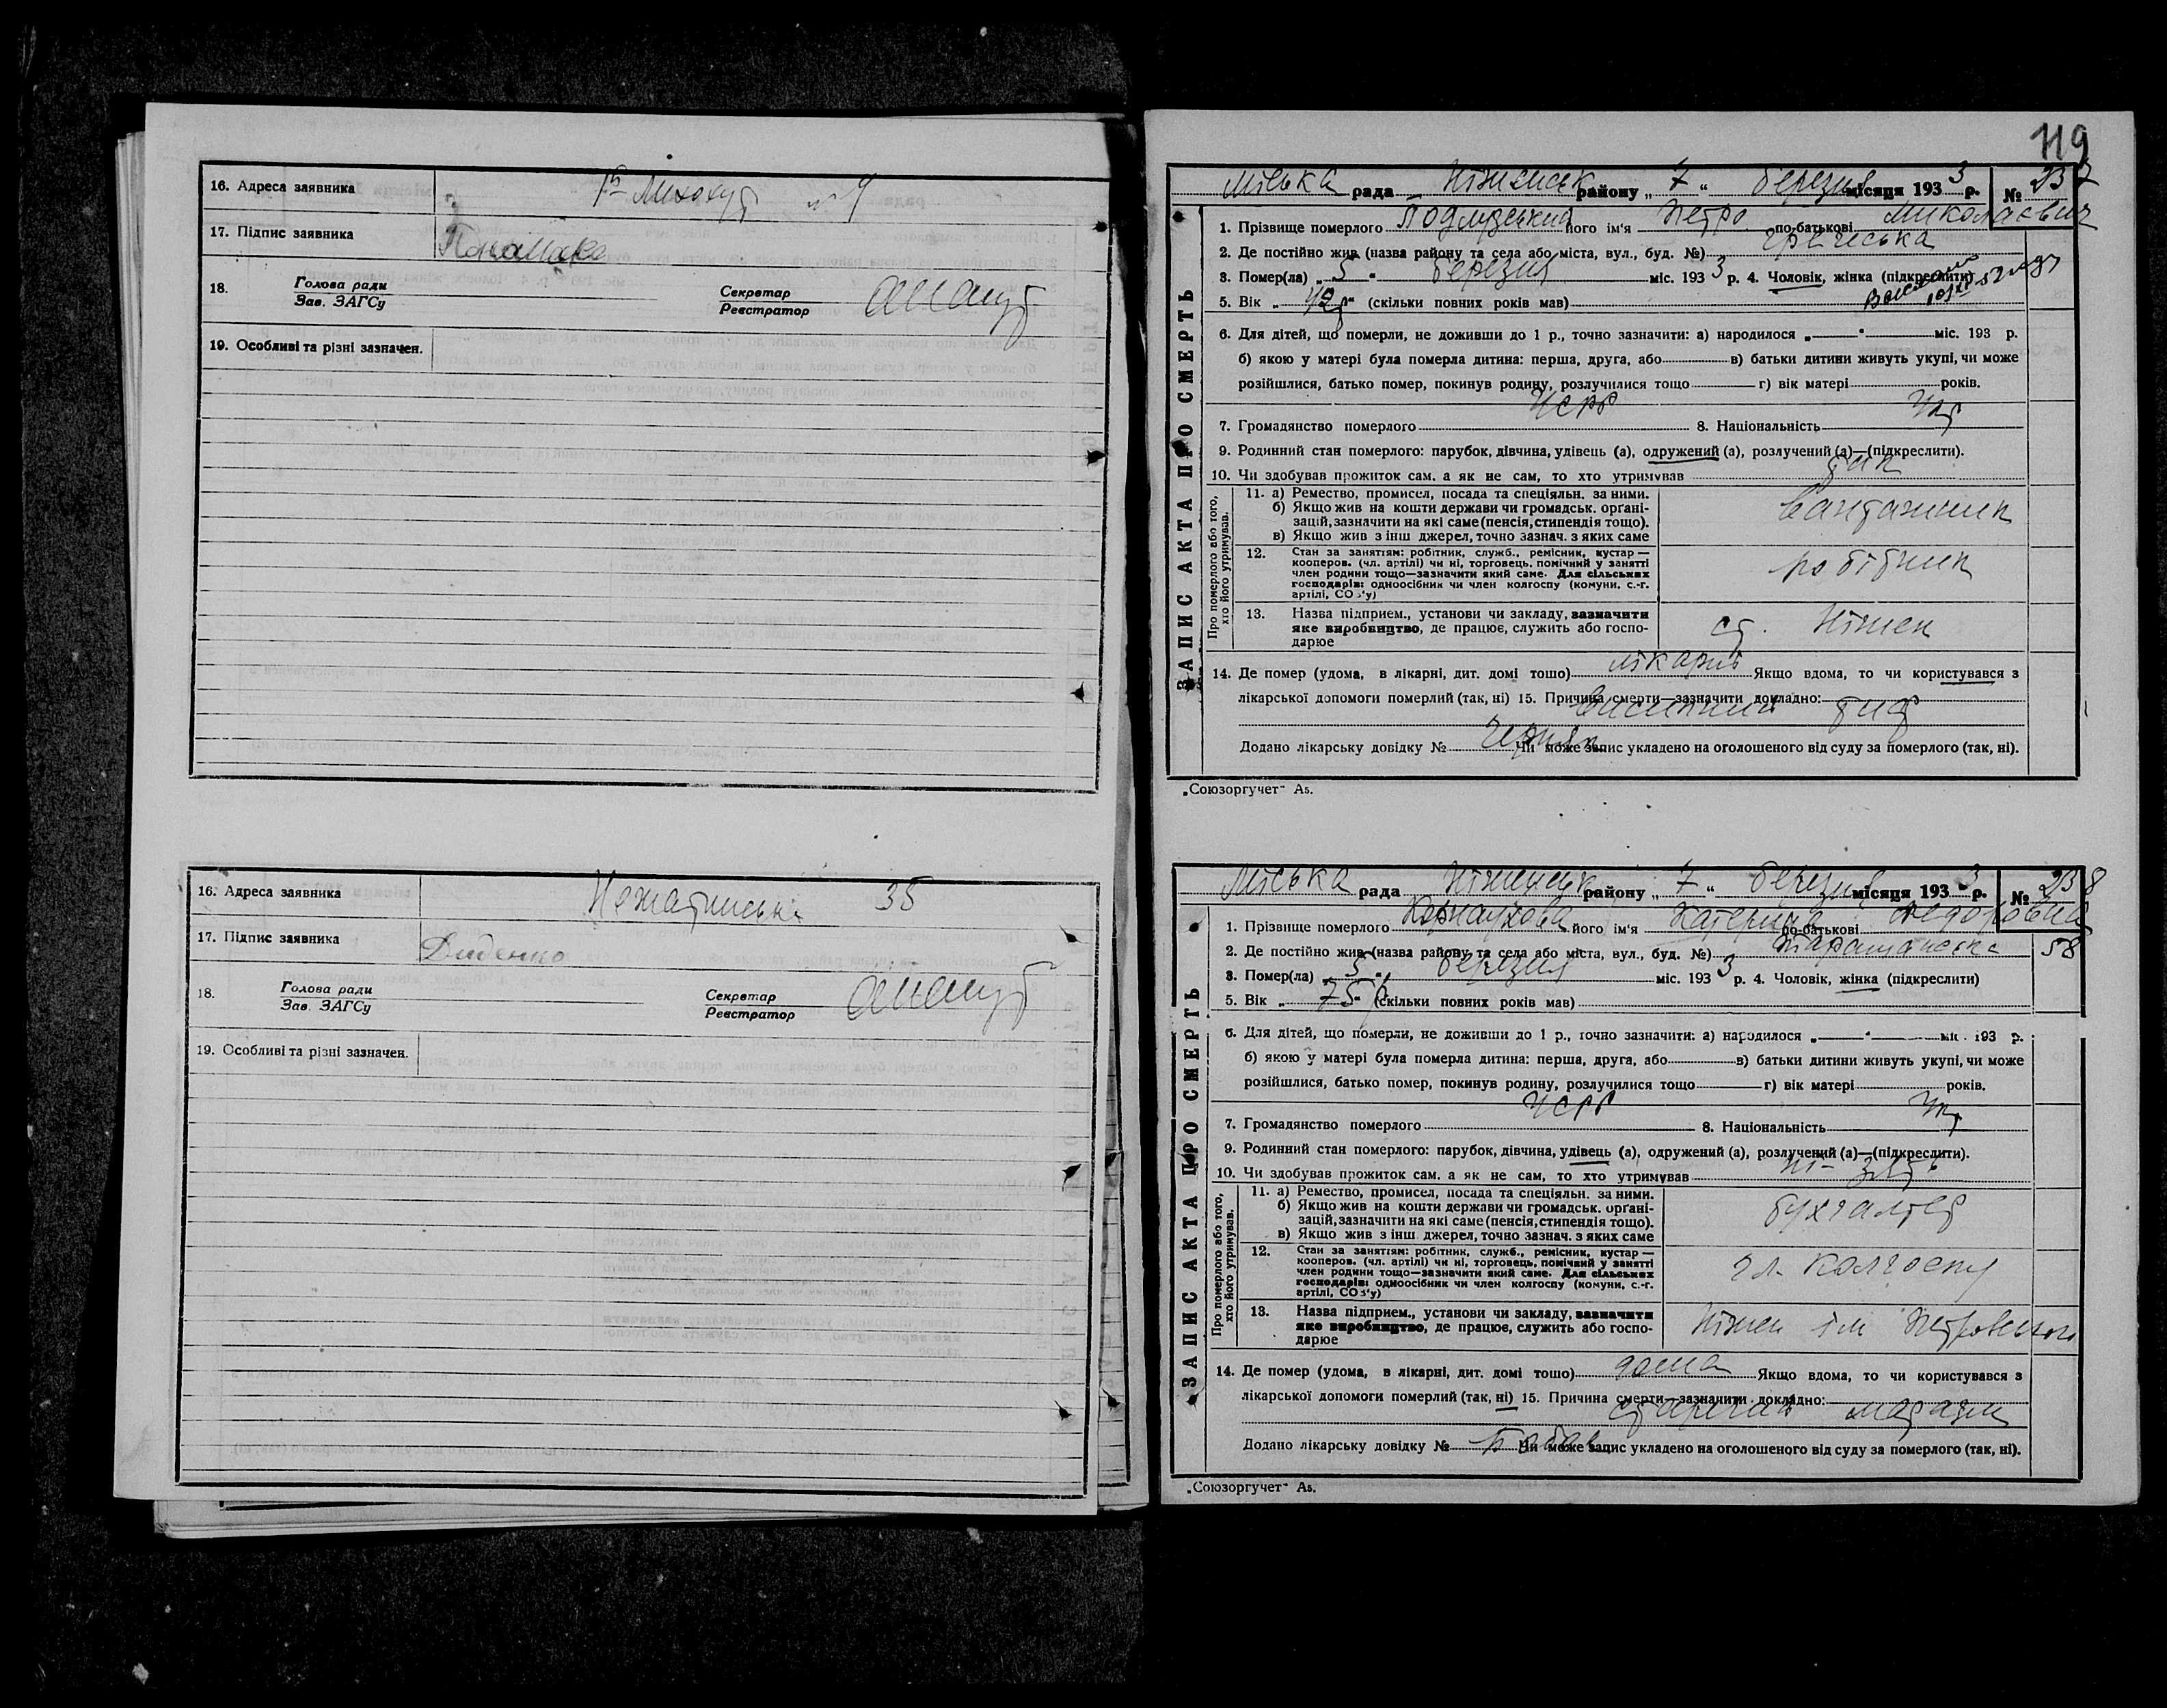 16. Адреса заявника
17. Підпис заявника
18. Голова ради
Зав. ЗАГСу
Секретар
Реєстратор
19. Особливі та різні зазначен.
16. Адреса заявника 35
17. Підпис заявника Диденко
18. Голова ради
Зав. ЗАГСу
Секретар
Реєстратор
19. Особливі та різні зазначен.
119
ЗАПИС АКТА ПРО СМЕРТЬ
Міська рада Ніженськ району „ 7 “ березня місяця 1933 р. № 237
1. Прізвище померлого його ім'я Петро по-батькові Миколаєвич
2. Де постійно жив (назва району та села або міста, вул., буд. №)
3. Помер(ла) „ 5 “ березня міс. 1933 р. 4. Чоловік, жінка (підкреслити)
5. Вік „ “ (скільки повних років мав)
6. Для дітей, що померли, не доживши до 1 р., точно зазначити: а) народилося „ “ міс. 193 р.
б) якою у матері була померла дитина: перша, друга, або в) батьки дитини живуть укупі, чи може
розійшлися, батько помер, покинув родину, розлучилися тощо г) вік матері років.
7. Громадянство померлого УСРР 8. Національність Укр
9. Родинний стан померлого: парубок, дівчина, удівець (а), одружений (а), розлучений (а)—(підкреслити).
10. Чи здобував прожиток сам. а як не сам, то хто утримував так
Про померлого або того, хто його утримував.
11. а) Ремество, промисел, посада та спеціяльн. за ними.
б) Якщо жив на кошти держави чи громадськ. орґані-
зацій, зазначити на які саме (пенсія, стипендія тощо).
в) Якщо жив з інш джерел, точно зазнач. з яких саме
вантажник
12. Стан за заняттям: робітник, служб., ремісник, кустар —
кооперов. (чл. артілі) чи ні, торговець, помічний у занятті
член родини тощо—зазначити який саме. Для сільських
господарів: одноосібник чи член колгоспу (комуни, с.-г.
артілі, СОЗ'у)
робітник
13. Назва підприєм., установи чи закладу, зазначити
яке виробництво, де працює, служить або госпо-
дарює
ст. Ніжен
14. Де помер (удома, в лікарні, дит. домі тощо) лікарні Якщо вдома, то чи користувався з
лікарської допомоги померлий (так, ні) 15. Причина смерти—зазначити докладно:
висипний тиф
Додано лікарську довідку № Чи може запис укладено на оголошеного від суду за померлого (так, ні).
„Союзоргучет“ А5.
ЗАПИС АКТА ПРО СМЕРТЬ
Міська рада Ніженськ району „ 7 “ березня місяця 1933 р. № 238
1. Прізвище померлого Корнаухова його ім'я Катерина по-батькові Федоровна
2. Де постійно жив (назва району та села або міста, вул., буд. №) 58
3. Помер(ла) „ 5 “ березня міс. 1933 р. 4. Чоловік, жінка (підкреслити)
5. Вік „ 75 “ (скільки повних років мав)
6. Для дітей, що померли, не доживши до 1 р., точно зазначити: а) народилося „ “ міс. 193 р.
б) якою у матері була померла дитина: перша, друга, або в) батьки дитини живуть укупі, чи може
розійшлися, батько помер, покинув родину, розлучилися тощо г) вік матері років.
7. Громадянство померлого УСРР 8. Національність Укр
9. Родинний стан померлого: парубок, дівчина, удівець (а), одружений (а), розлучений (а)—(підкреслити).
10. Чи здобував прожиток сам. а як не сам, то хто утримував ні — зять
Про померлого або того, хто його утримував.
11. а) Ремество, промисел, посада та спеціяльн. за ними.
б) Якщо жив на кошти держави чи громадськ. орґані-
зацій, зазначити на які саме (пенсія, стипендія тощо).
в) Якщо жив з інш джерел, точно зазнач. з яких саме
бухгалтер
12. Стан за заняттям: робітник, служб., ремісник, кустар —
кооперов. (чл. артілі) чи ні, торговець, помічний у занятті
член родини тощо—зазначити який саме. Для сільських
господарів: одноосібник чи член колгоспу (комуни, с.-г.
артілі, СОЗ'у)
чл. колгоспу
13. Назва підприєм., установи чи закладу, зазначити
яке виробництво, де працює, служить або госпо-
дарює
Ніжен ім Петровського
14. Де помер (удома, в лікарні, дит. домі тощо) дома Якщо вдома, то чи користувався з
лікарської допомоги померлий (так, ні) 15. Причина смерти—зазначити докладно:
маразм
Додано лікарську довідку № Чи може запис укладено на оголошеного від суду за померлого (так, ні).
„Союзоргучет“ А5.